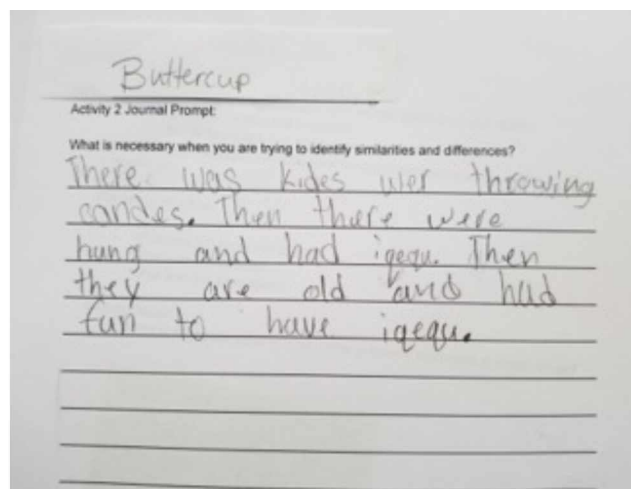 Buttercup
Activity 2 Journal Prompt:
What is necessary when you are trying to identify similarities and differences?
There was kides wer throwing
candes. Then there were
hung and had iqequ. Then
they are old and had
fun to have iqequ.